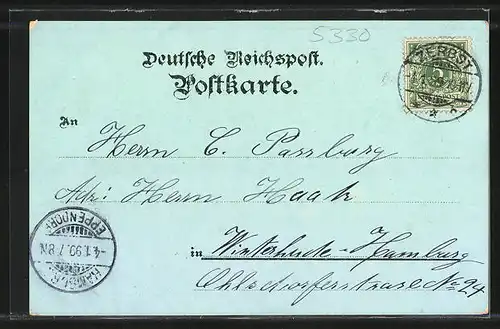 5330
Deutsche Reichspost.
Postkarte.
ZERBST
5
An
Herrn C. Passburg
Adr: Herrn Haak
HAMBURG
EPPENDORF
-4.1.99.7-8N
in Winterhude-Hamburg
Ohlsdorferstrase No 24